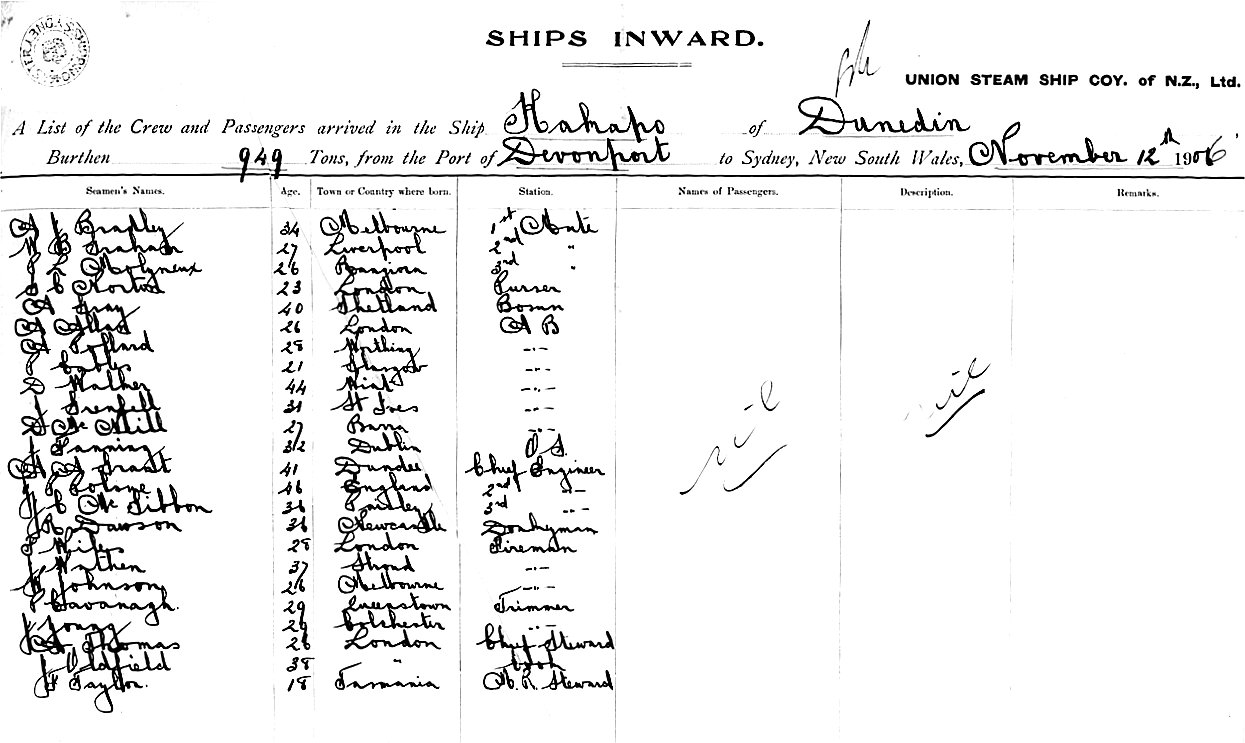 SHIPS INWARD.
UNION STEAM SHIP COY. of N.Z., Ltd.
A List of the Crew and Passengers arrived in the Ship Kakapo of Dunedin
Burthen 949 Tons, from the Port of Devonport to Sydney, New South Wales, November 12th 1906
Seamen's Names. Age. Town or Country where born. Station. Names of Passengers. Description. Remarks.
A J Bradley 34 Melbourne 1st Mate
Graham 27 Liverpool 2nd "
Molyneux 26 Rangiora 3rd "
C Norton 23 London Purser
A Gray 40 Shetland Bosun
A 26 London A B
A 28 Worthing -"-
21 Glasgow -"-
D Mather 44 -"-
J Grenfell 31 St Ives -"-
D Mc Neill 27 Barra -"-
J Fanning 32 Dublin O S
A A Grant 41 Dundee Chief Engineer
46 England 2nd -"-
J C Mc Gibbon 36 Paisley 3rd -"-
R Dawson 36 Newcastle Donkeyman
28 London Fireman
37 Stroud -"-
W Johnson 26 Melbourne -"-
P Cavanagh. 29 Queenstown Trimmer
Young 29 Colchester -"-
Thomas 26 London Chief Steward
J Oldfield 38 " Cook
F Taylor. 18 Tasmania M. R. Steward
nil nil